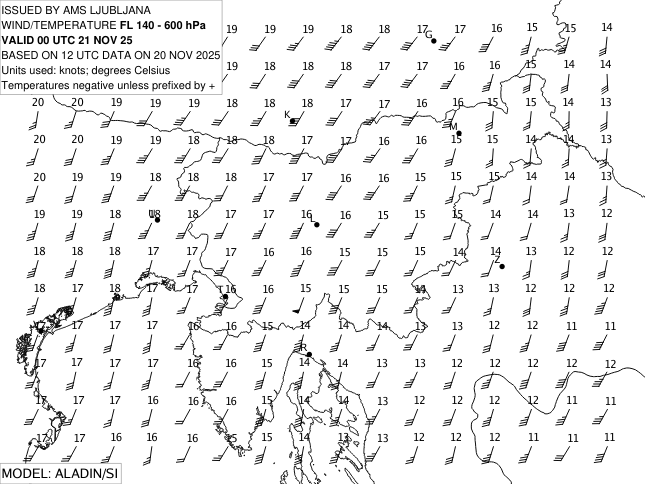 ISSUED BY AMS LJUBLJANA
WIND/TEMPERATURE FL 140 - 600 hPa
VALID 00 UTC 21 NOV 25
BASED ON 12 UTC DATA ON 20 NOV 2025
Units used: knots; degrees Celsius
Temperatures negative unless prefixed by +
19 19 18 18 18 17 17 16 15 15 14
G
19 18 18 18 17 17 16 16 15 14 14
20 20 19 19 19 18 18 18 17 17 16 16 15 15 14 13
K
M
20 20 19 19 18 18 18 17 17 16 16 15 15 14 14 13
20 19 19 18 18 18 17 17 16 16 15 15 15 14 14 13
19 19 18 18 18 17 17 16 16 15 15 15 14 14 13 12
L
18 18 18 17 17 17 16 16 15 15 15 14 14 13 12 12
Z
18 17 18 17 17 16 16 15 15 15 14 13 13 12 12 12
17 17 17 17 16 16 15 14 14 14 13 13 12 12 11 11
R
17 17 17 17 16 16 15 14 14 13 13 12 12 12 12 12
17 17 17 16 16 16 15 14 14 13 12 12 12 12 11 11
17 17 16 16 16 15 15 14 13 13 12 12 12 11 11 11
MODEL: ALADIN/SI